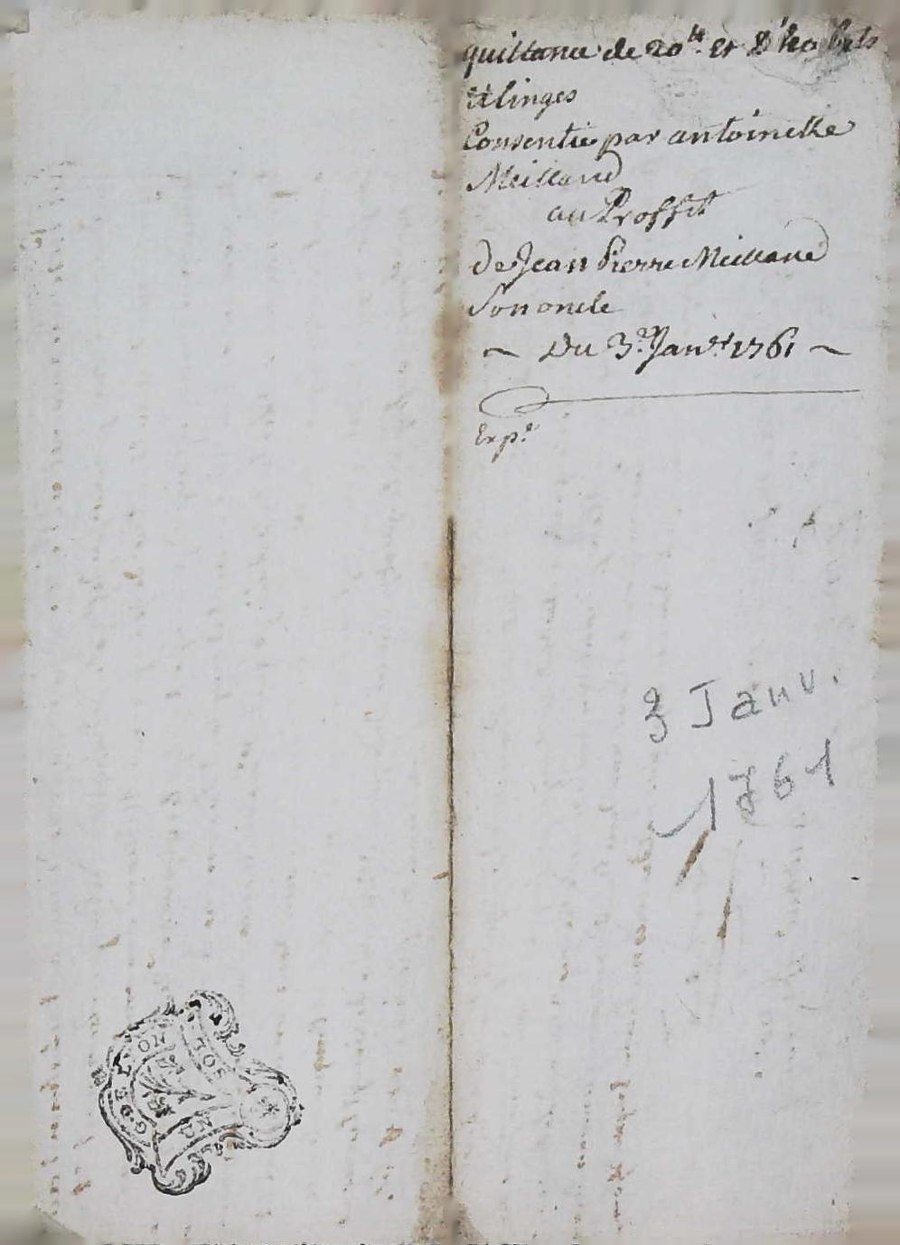 quittance de 20ᵗᵗ et d'habits
et linges
Consentie par antoinette
Meilland
au Proffit
de Jean Pierre Meilland
Son oncle
~ Du 3.e Janv.er 1761 ~
Exp.e
3 Janv.
1761
G. DE LYON